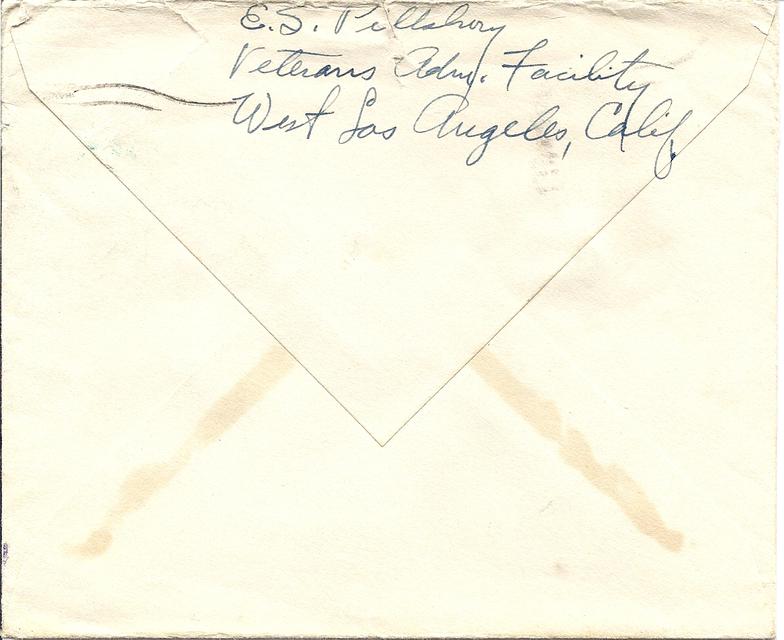 E.S. Pillsbury
Veterans Adm. Facility
West Los Angeles, Calif.